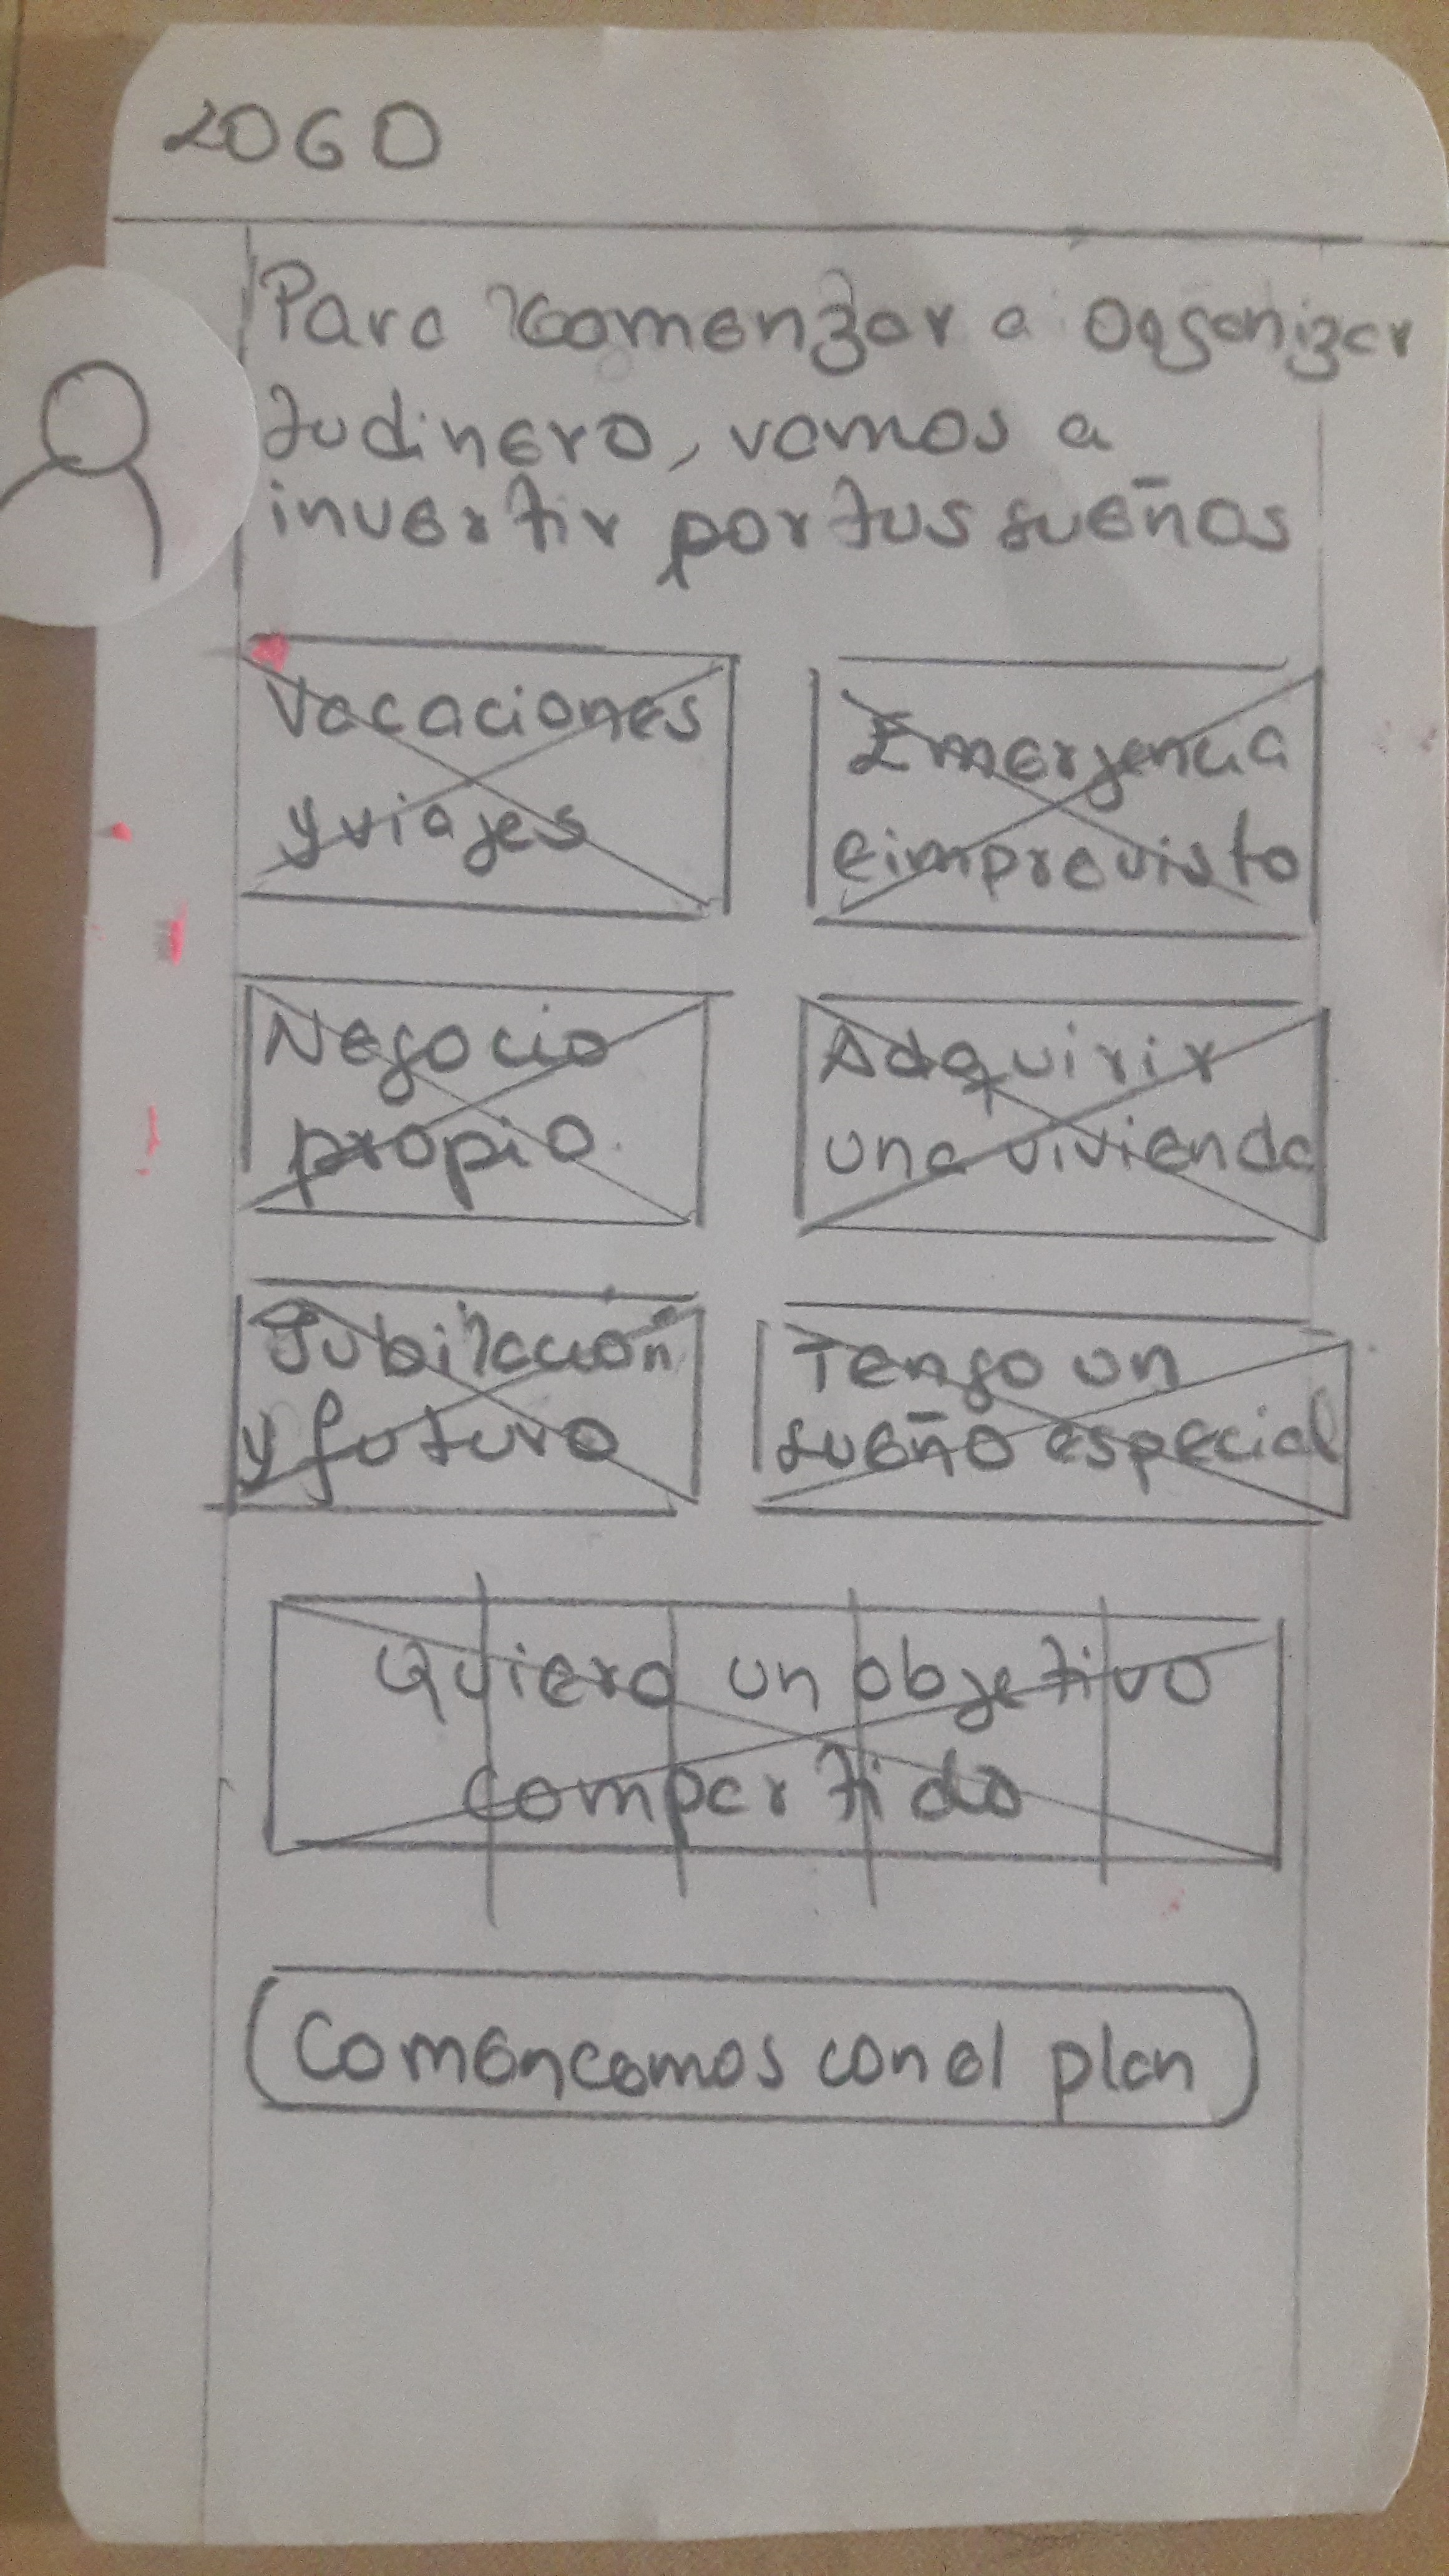 LOGO
Para comenzar a organizar
tu dinero, vamos a
invertir por tus sueños
Vacaciones
y viajes
Emergencia
e imprevisto
Negocio
propio
Adquirir
una vivienda
Jubilación
y futuro
Tengo un
sueño especial
Quiero un objetivo
compartido
Comencemos con el plan